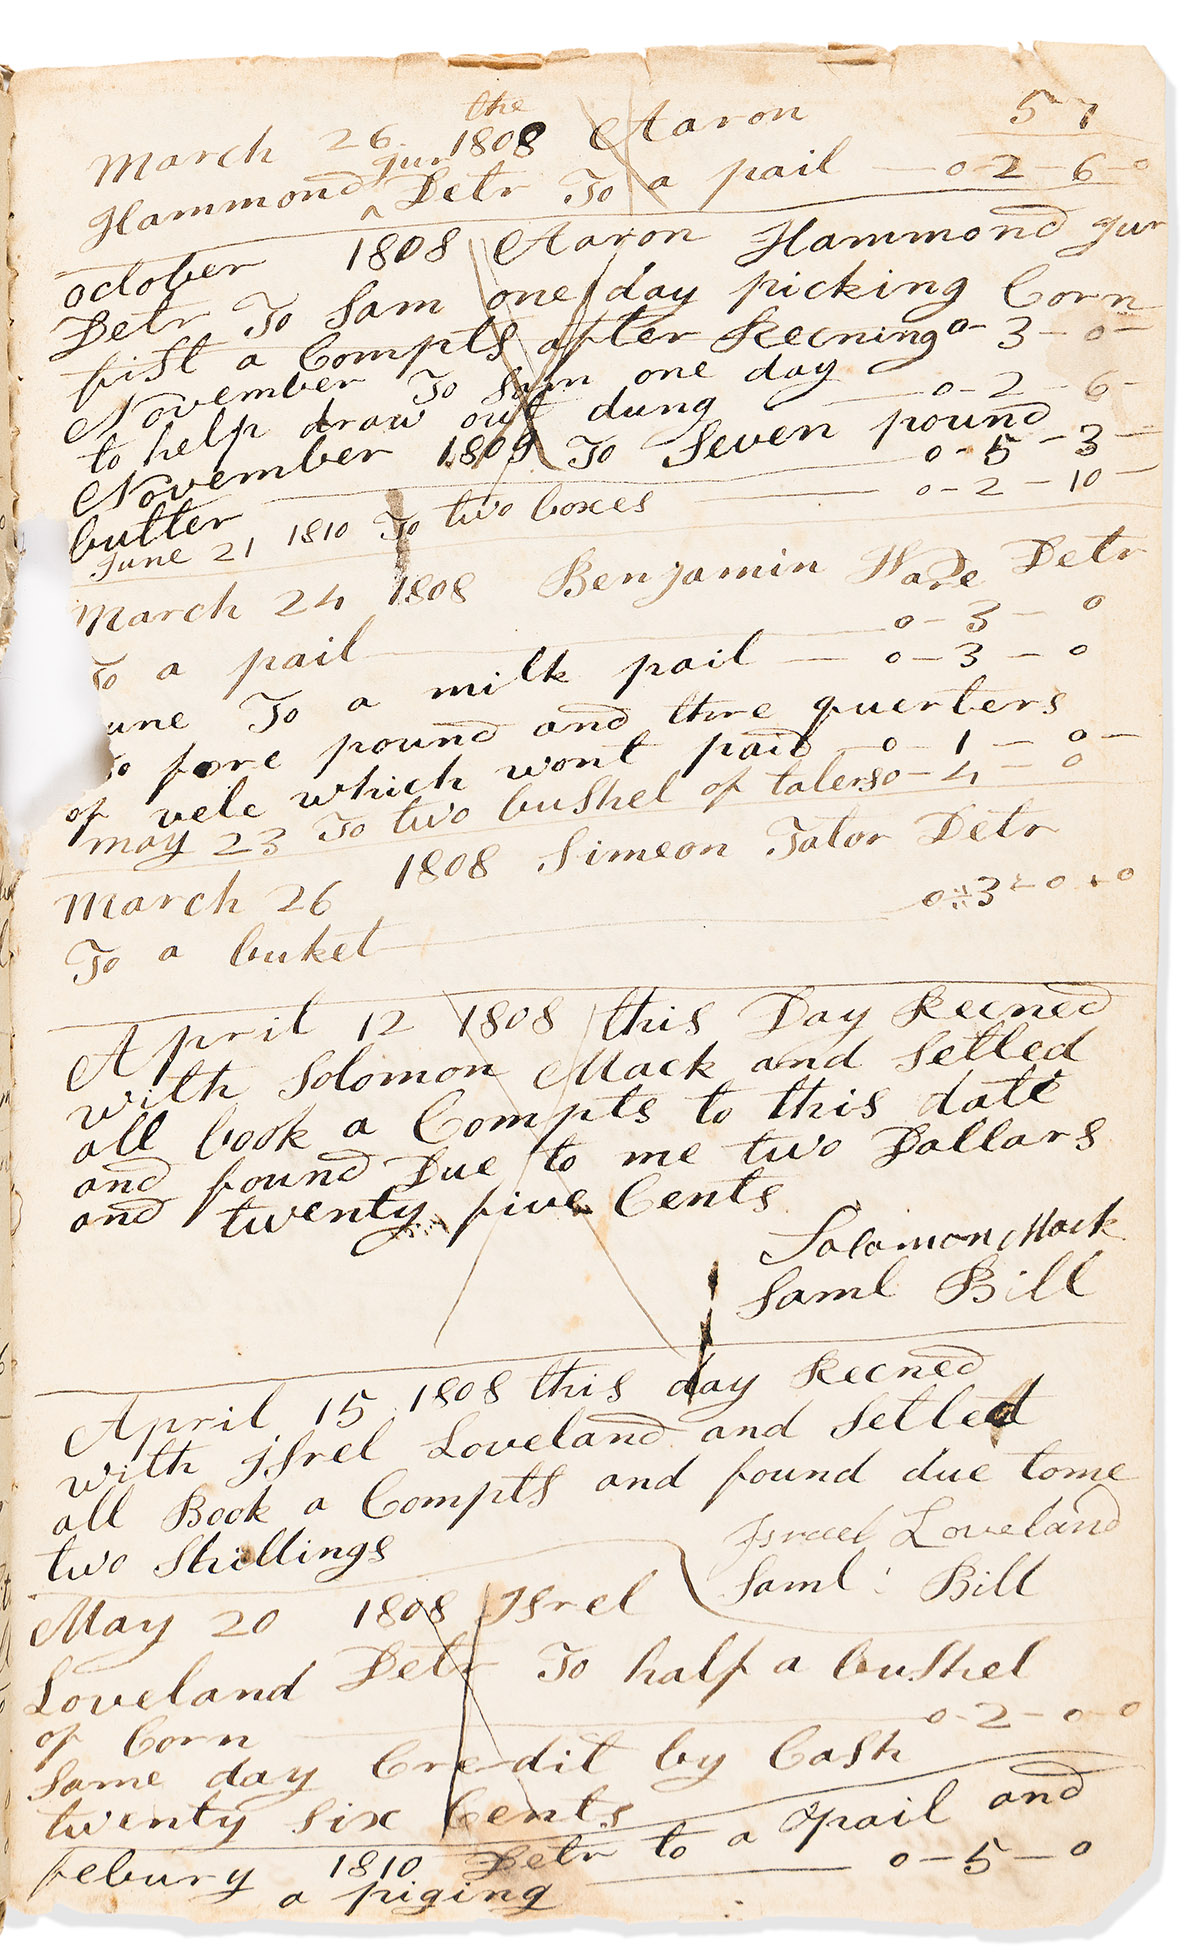 57
March 26 the 1808 Aaron
Hammond Jur Detr To a pail — 0-2-6-0
october 1808 Aaron Hammond Jur
Detr To Sam one day picking Corn
fist a Compts after Recning 0-3-0-
November To Sam one day
to help draw out dung — 0-2-6-
November 1809 To Seven pound
butter — 0-5-3-
June 21 1810 To two boxes — 0-2-10-
March 24 1808 Benjamin Detr
To a pail — 0-3-0
une To a milk pail — 0-3-0
To fore pound and thre querters
of vele which wont paid 0-1-0-
may 23 To two bushel of taters 0-4-0
March 26 1808 Simeon Talor Detr
To a buket — 0-3-0-0
April 12 1808 this Day Recned
with Solomon Mack and Setled
all book a Compts to this date
and found Due to me two Dallars
and twenty five Cents
Solomon Mack
Saml Bill
April 15 1808 this day Recned
with Isrel Loveland and Setled
all Book a Compts and found due tome
two Shillings
Israel Loveland
Saml : Bill
May 20 1808 Isrel
Loveland Detr To half a bushel
of Corn — 0-2-0-0
Same day Credit by Cash
twenty six Cents
febury 1810 Detr to a pail and
a piging — 0-5-0